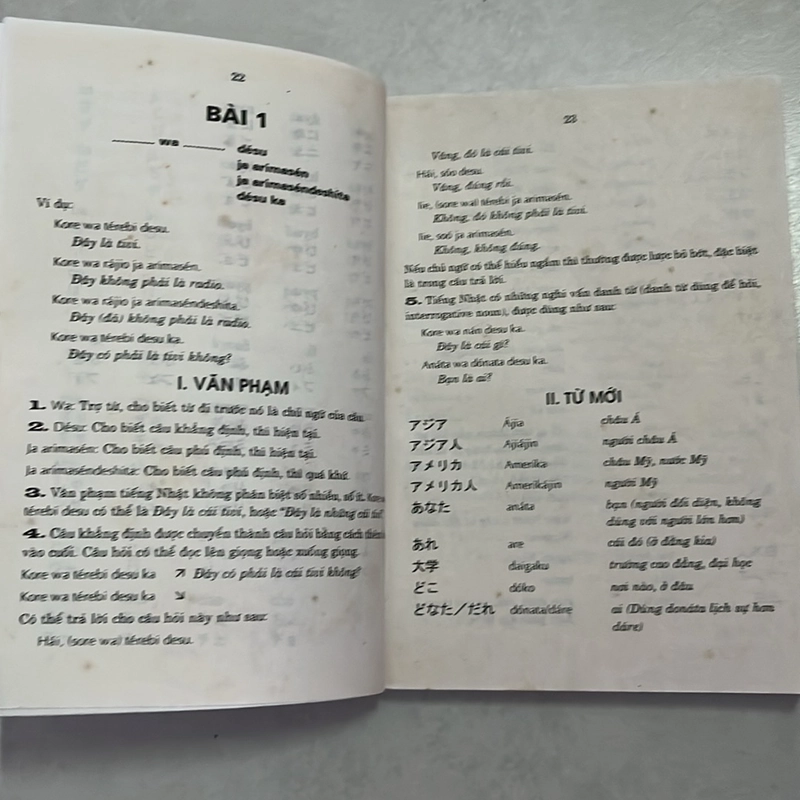 22
BÀI 1
______ wa ______ désu
ja arimasén
ja arimaséndeshita
désu ka
Ví dụ:
Kore wa térebi desu.
Đây là tivi.
Kore wa rájio ja arimasén.
Đây không phải là radio.
Kore wa rájio ja arimaséndeshita.
Đây (đó) không phải là radio.
Kore wa térebi desu ka.
Đây có phải là tivi không?
I. VĂN PHẠM
1. Wa: Trợ từ, cho biết từ đi trước nó là chủ ngữ của câu.
2. Désu: Cho biết câu khẳng định, thì hiện tại.
Ja arimasén: Cho biết câu phủ định, thì hiện tại.
Ja arimaséndeshita: Cho biết câu phủ định, thì quá khứ.
3. Văn phạm tiếng Nhật không phân biệt số nhiều, số ít. Kore
térebi desu có thể là Đây là cái tivi, hoặc "Đây là những cái tivi".
4. Câu khẳng định được chuyển thành câu hỏi bằng cách thêm
vào cuối. Câu hỏi có thể đọc lên giọng hoặc xuống giọng.
Kore wa térebi desu ka ↗ Đây có phải là cái tivi không?
Kore wa térebi desu ka ↘
Có thể trả lời cho câu hỏi này như sau:
Hái, (sore wa) térebi desu.
23
Vâng, đó là cái tivi.
Hái, sóo desu.
Vâng, đúng rồi.
Iie, (sore wa) térebi ja arimasén.
Không, đó không phải là tivi.
Iie, soó ja arimasén.
Không, không đúng.
Nếu chủ ngữ có thể hiểu ngầm thì thường được lược bỏ bớt, đặc biệt
là trong câu trả lời.
5. Tiếng Nhật có những nghi vấn danh từ (danh từ dùng để hỏi,
interrogative noun), được dùng như sau:
Kore wa nán desu ka.
Đây là cái gì?
Anáta wa dónata desu ka.
Bạn là ai?
II. TỪ MỚI
アジア Ájia châu Á
アジア人 Ajiájin người châu Á
アメリカ Amerika châu Mỹ, nước Mỹ
アメリカ人 Amerikájin người Mỹ
あなた anáta bạn (người đối diện, không
dùng với người lớn hơn)
あれ are cái đó (ở đằng kia)
大学 daigaku trường cao đẳng, đại học
どこ dóko nơi nào, ở đâu
どなた／だれ dónata/dáre ai (Dùng donáta lịch sự hơn
dáre)